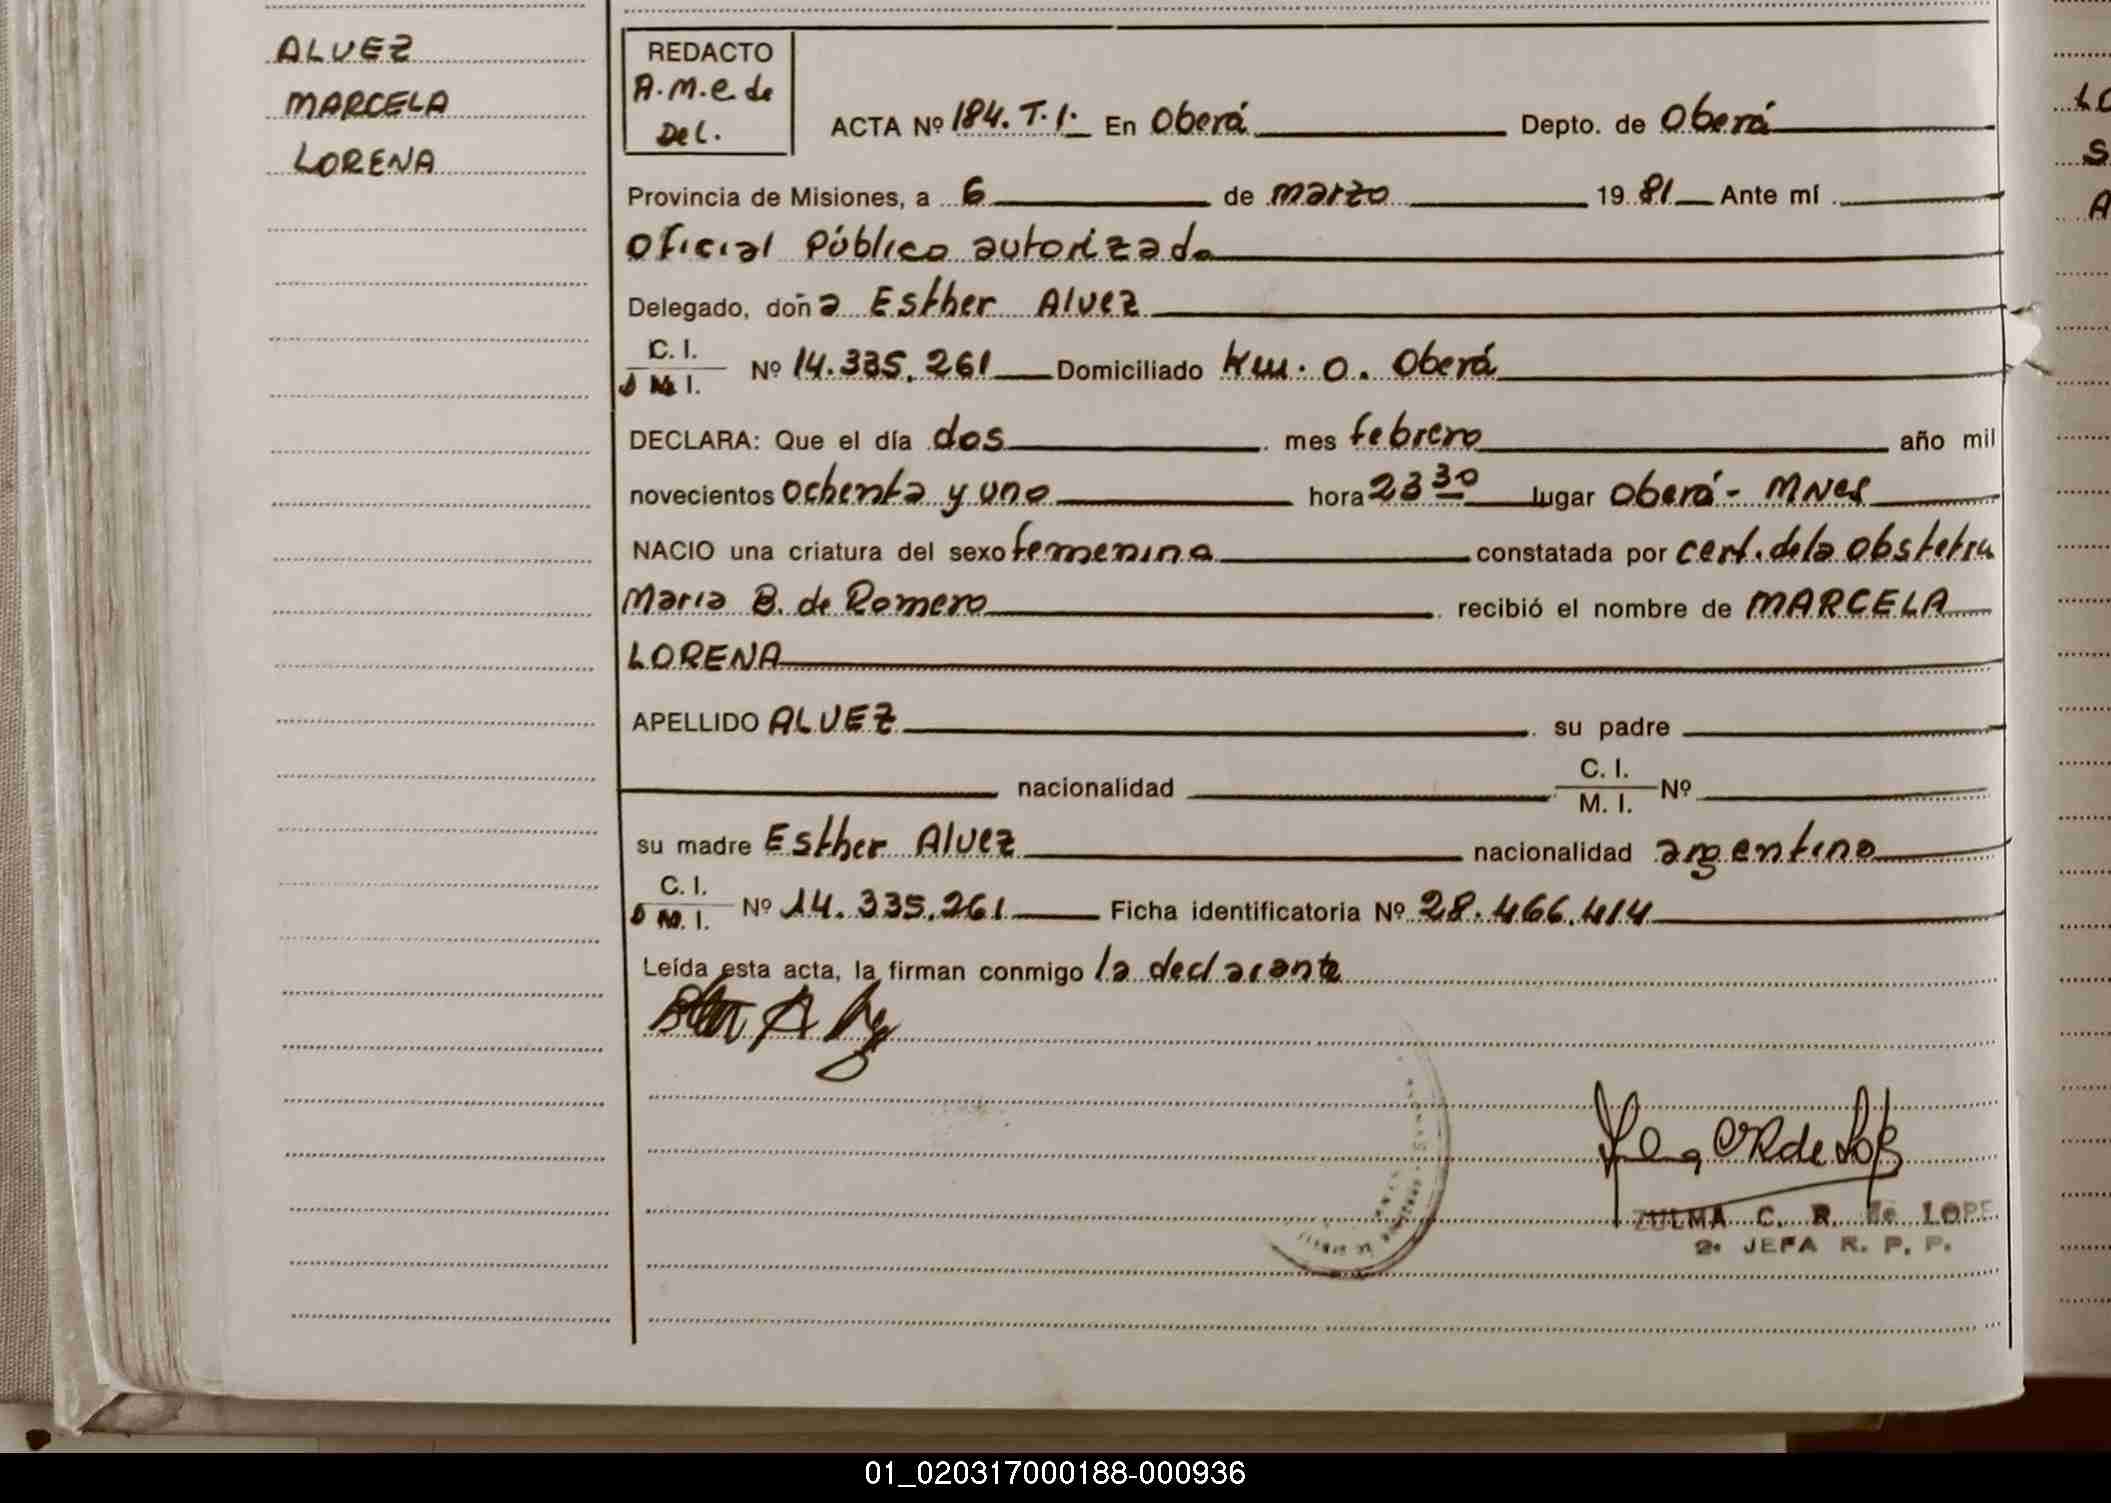 ALVEZ
MARCELA
LORENA
REDACTO
A.M.e de
Del.
ACTA Nº 184. T.I. En Oberá Depto. de Oberá
Provincia de Misiones, a 6 de marzo 1981 Ante mí
Oficial Público autorizado
Delegado, doña Esther Alvez
C. I.
D N. I. Nº 14.335.261 Domiciliado Km. 0. Oberá
DECLARA: Que el día dos mes febrero año mil
novecientos ochenta y uno hora 23 30 lugar Oberá - MNes
NACIO una criatura del sexo femenino constatada por cert. de la obstetra
Maria B. de Romero recibió el nombre de MARCELA
LORENA
APELLIDO ALVEZ su padre
nacionalidad C. I.
M. I. Nº
su madre Esther Alvez nacionalidad argentina
C. I.
D N. I. Nº 14.335.261 Ficha identificatoria Nº 28.466.414
Leída esta acta, la firman conmigo la declarante
ZULMA C. R. de LOPE
2ª JEFA R. P. P.
LO
S
A
01_020317000188-000936